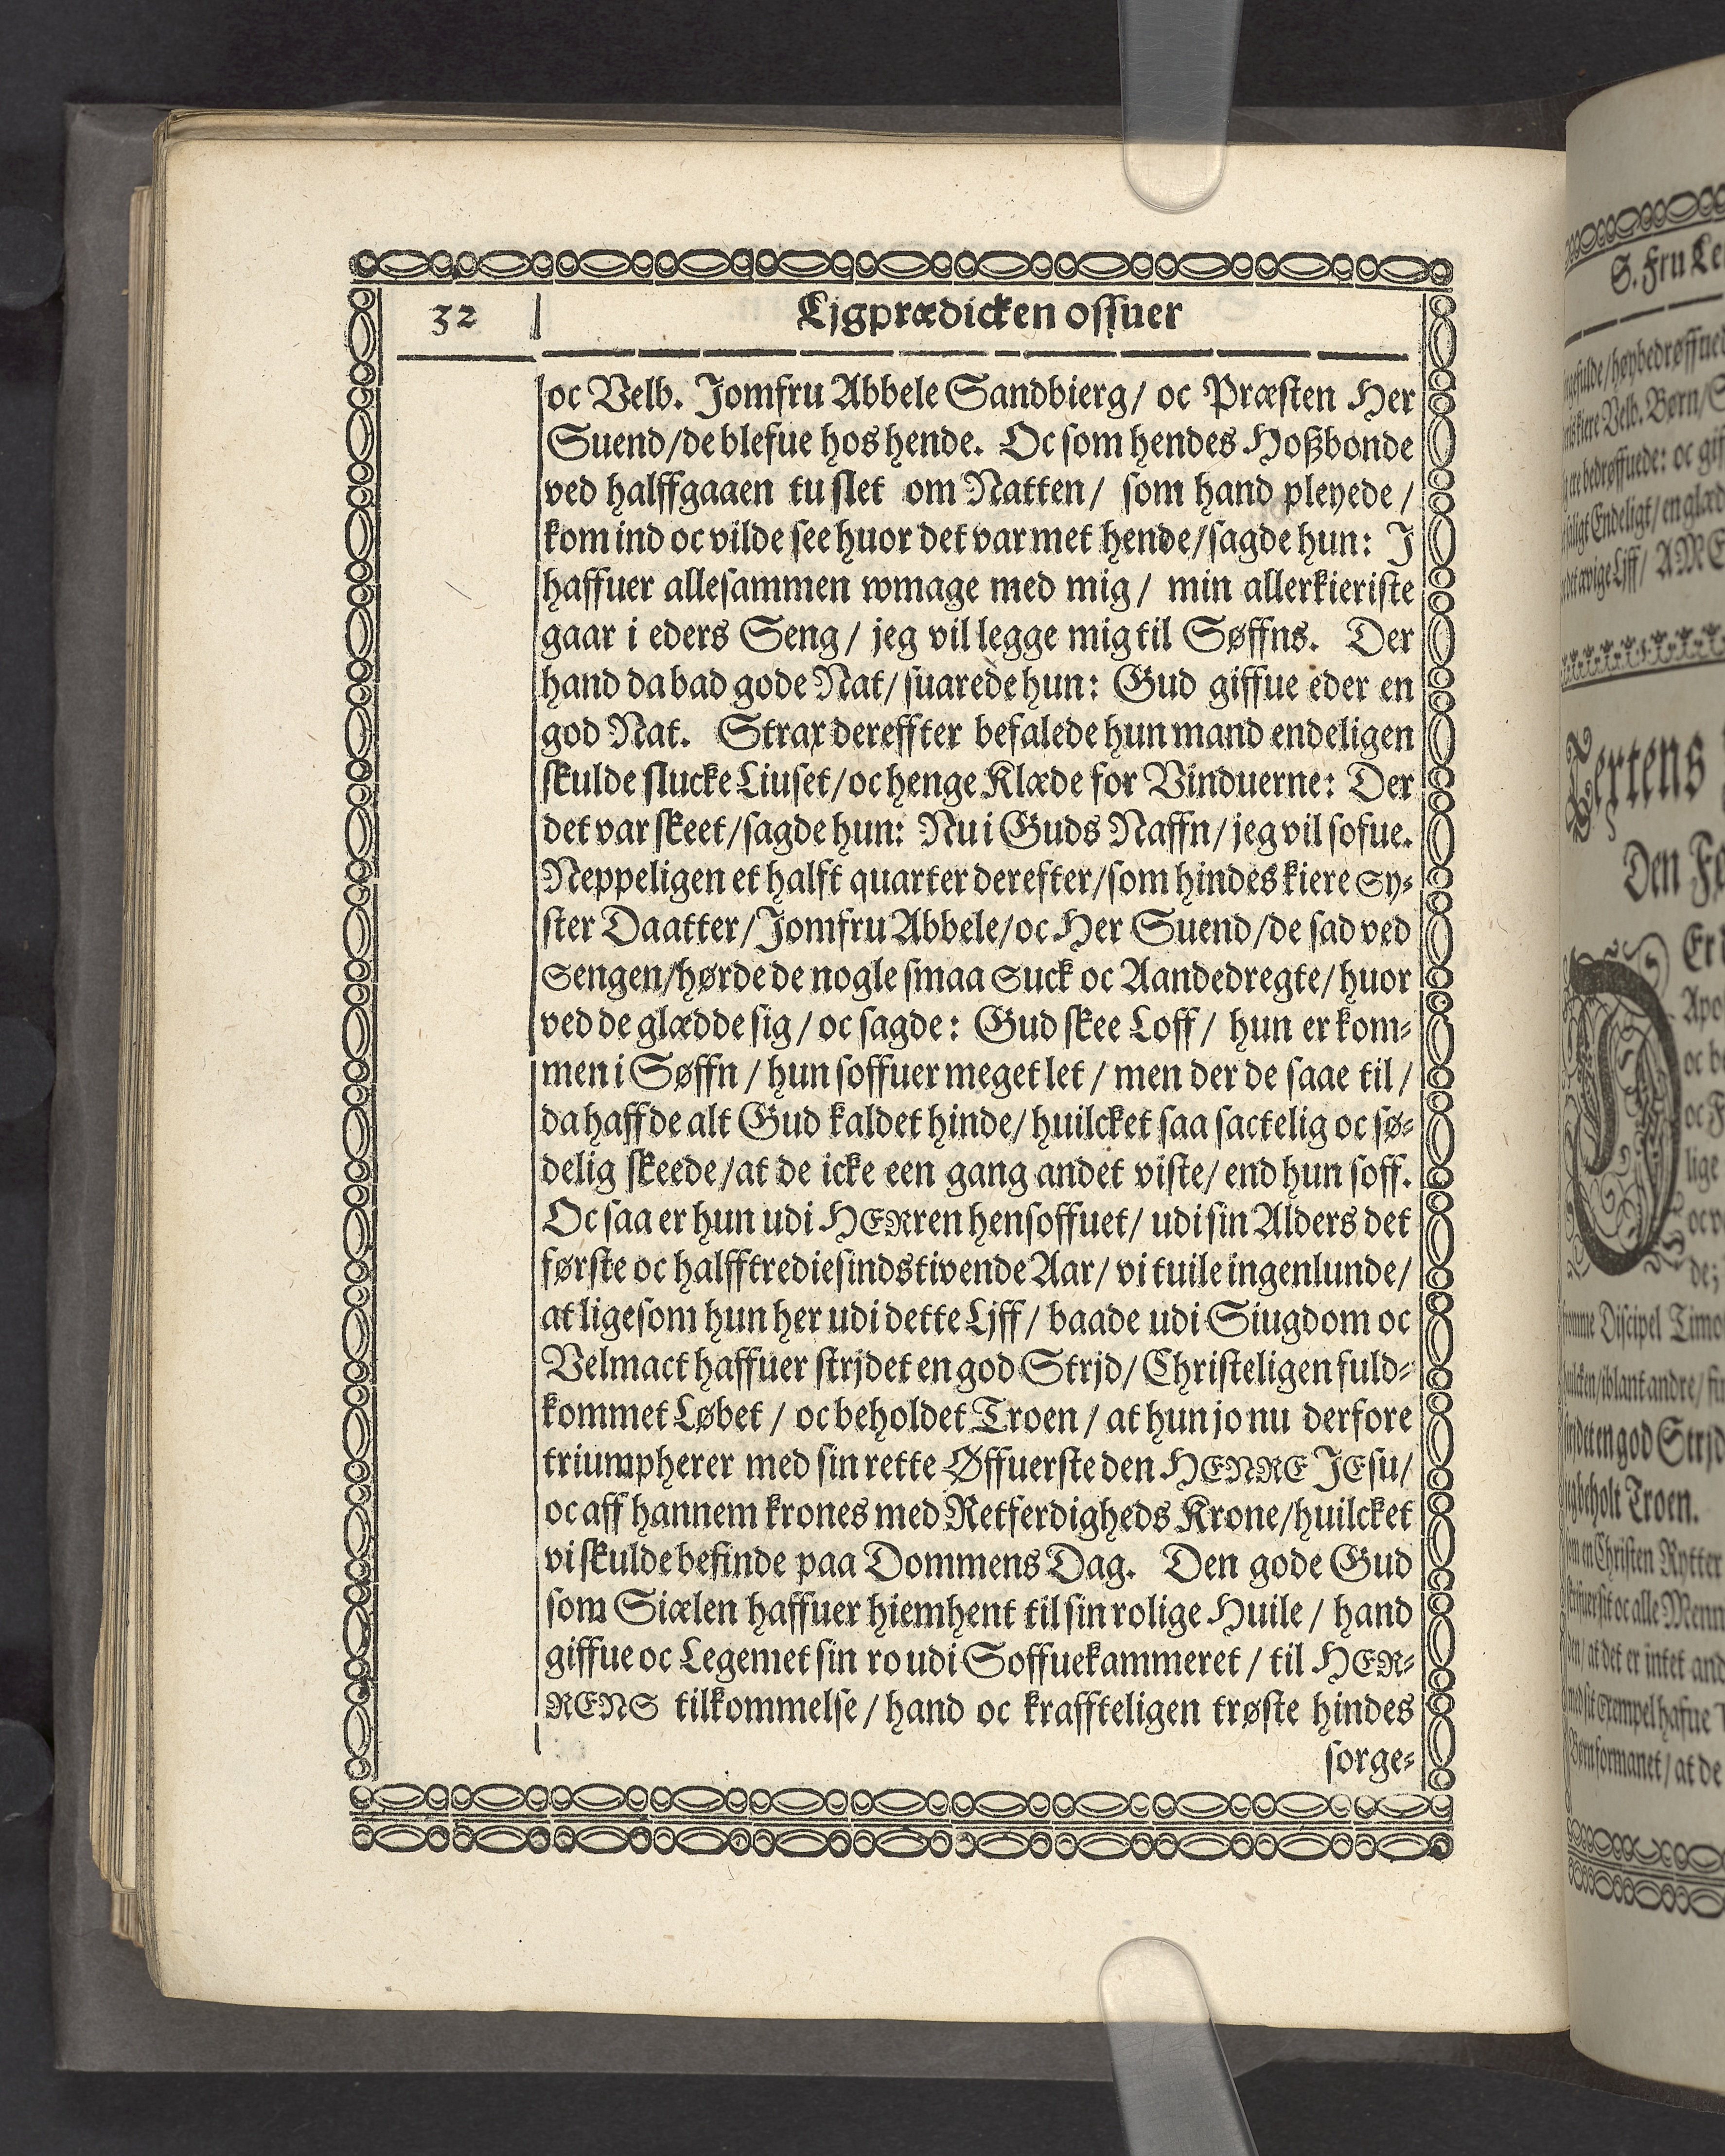 32
Ljgprædicken offuer
oc Velb. Jomfru Abbele Sandbierg/ oc Præsten Her
Suend/de blefue hos hende. Oc som hendes Hoßbonde
ved halffgaaen tu slet om Natten/ som hand pleyede/
kom ind oc vilde see huor det var met hende/sagde hun: J
haffuer allesammen wmage med mig/ min allerkieriste
gaar i eders Seng/ jeg vil legge mig til Søffns. Der
hand da bad gode Nat/ suarede hun: Gud giffue eder en
god Nat. Strax dereffter befalede hun mand endeligen
skulde slucke Liuset/oc henge Klæde for Vinduerne: Der
det var skeet/sagde hun: Nu i Guds Naffn/jeg vil sofue.
Neppeligen et halft quarter derefter/som hindes kiere Sy-
ster Daatter/Jomfru Abbele/oc Her Suend/de sad ved
Sengen/hørde de nogle smaa Suck oc Aandedregte/huor
ved de glædde sig/oc sagde: Gud skee Loff/ hun er kom-
men i Søffn/ hun soffuer meget let/ men der de saae til/
da haffde alt Gud kaldet hinde/ huilcket saa sactelig oc sø-
delig skeede/at de icke een gang andet viste/ end hun soff.
Oc saa er hun udi HERren hensoffuet/ udi sin Alders det
første oc halfftrediesindstivende Aar/ vi tuile ingenlunde/
at ligesom hun her udi dette Ljff/ baade udi Siugdom oc
Velmact haffuer strjdet en god Strjd/ Christeligen fuld-
kommet Løbet/ oc beholdet Troen/ at hun jo nu derfore
triumpherer med sin rette Øffuerste den HENRE JEsu/
oc aff hannem krones med Retferdigheds Krone/huilcket
vi skulde befinde paa Dommens Dag. Den gode Gud
som Siælen haffuer hiemhent til sin rolige Huile/ hand
giffue oc Legemet sin ro udi Soffuekammeret/ til HER-
RENS tilkommelse/ hand oc kraffteligen trøste hindes
sorge-
S. Fru
Den
Apo
lige
Discipel
en god
Troen.
en Christen Rytter
oc alle
at det er intet
formanet/ at de